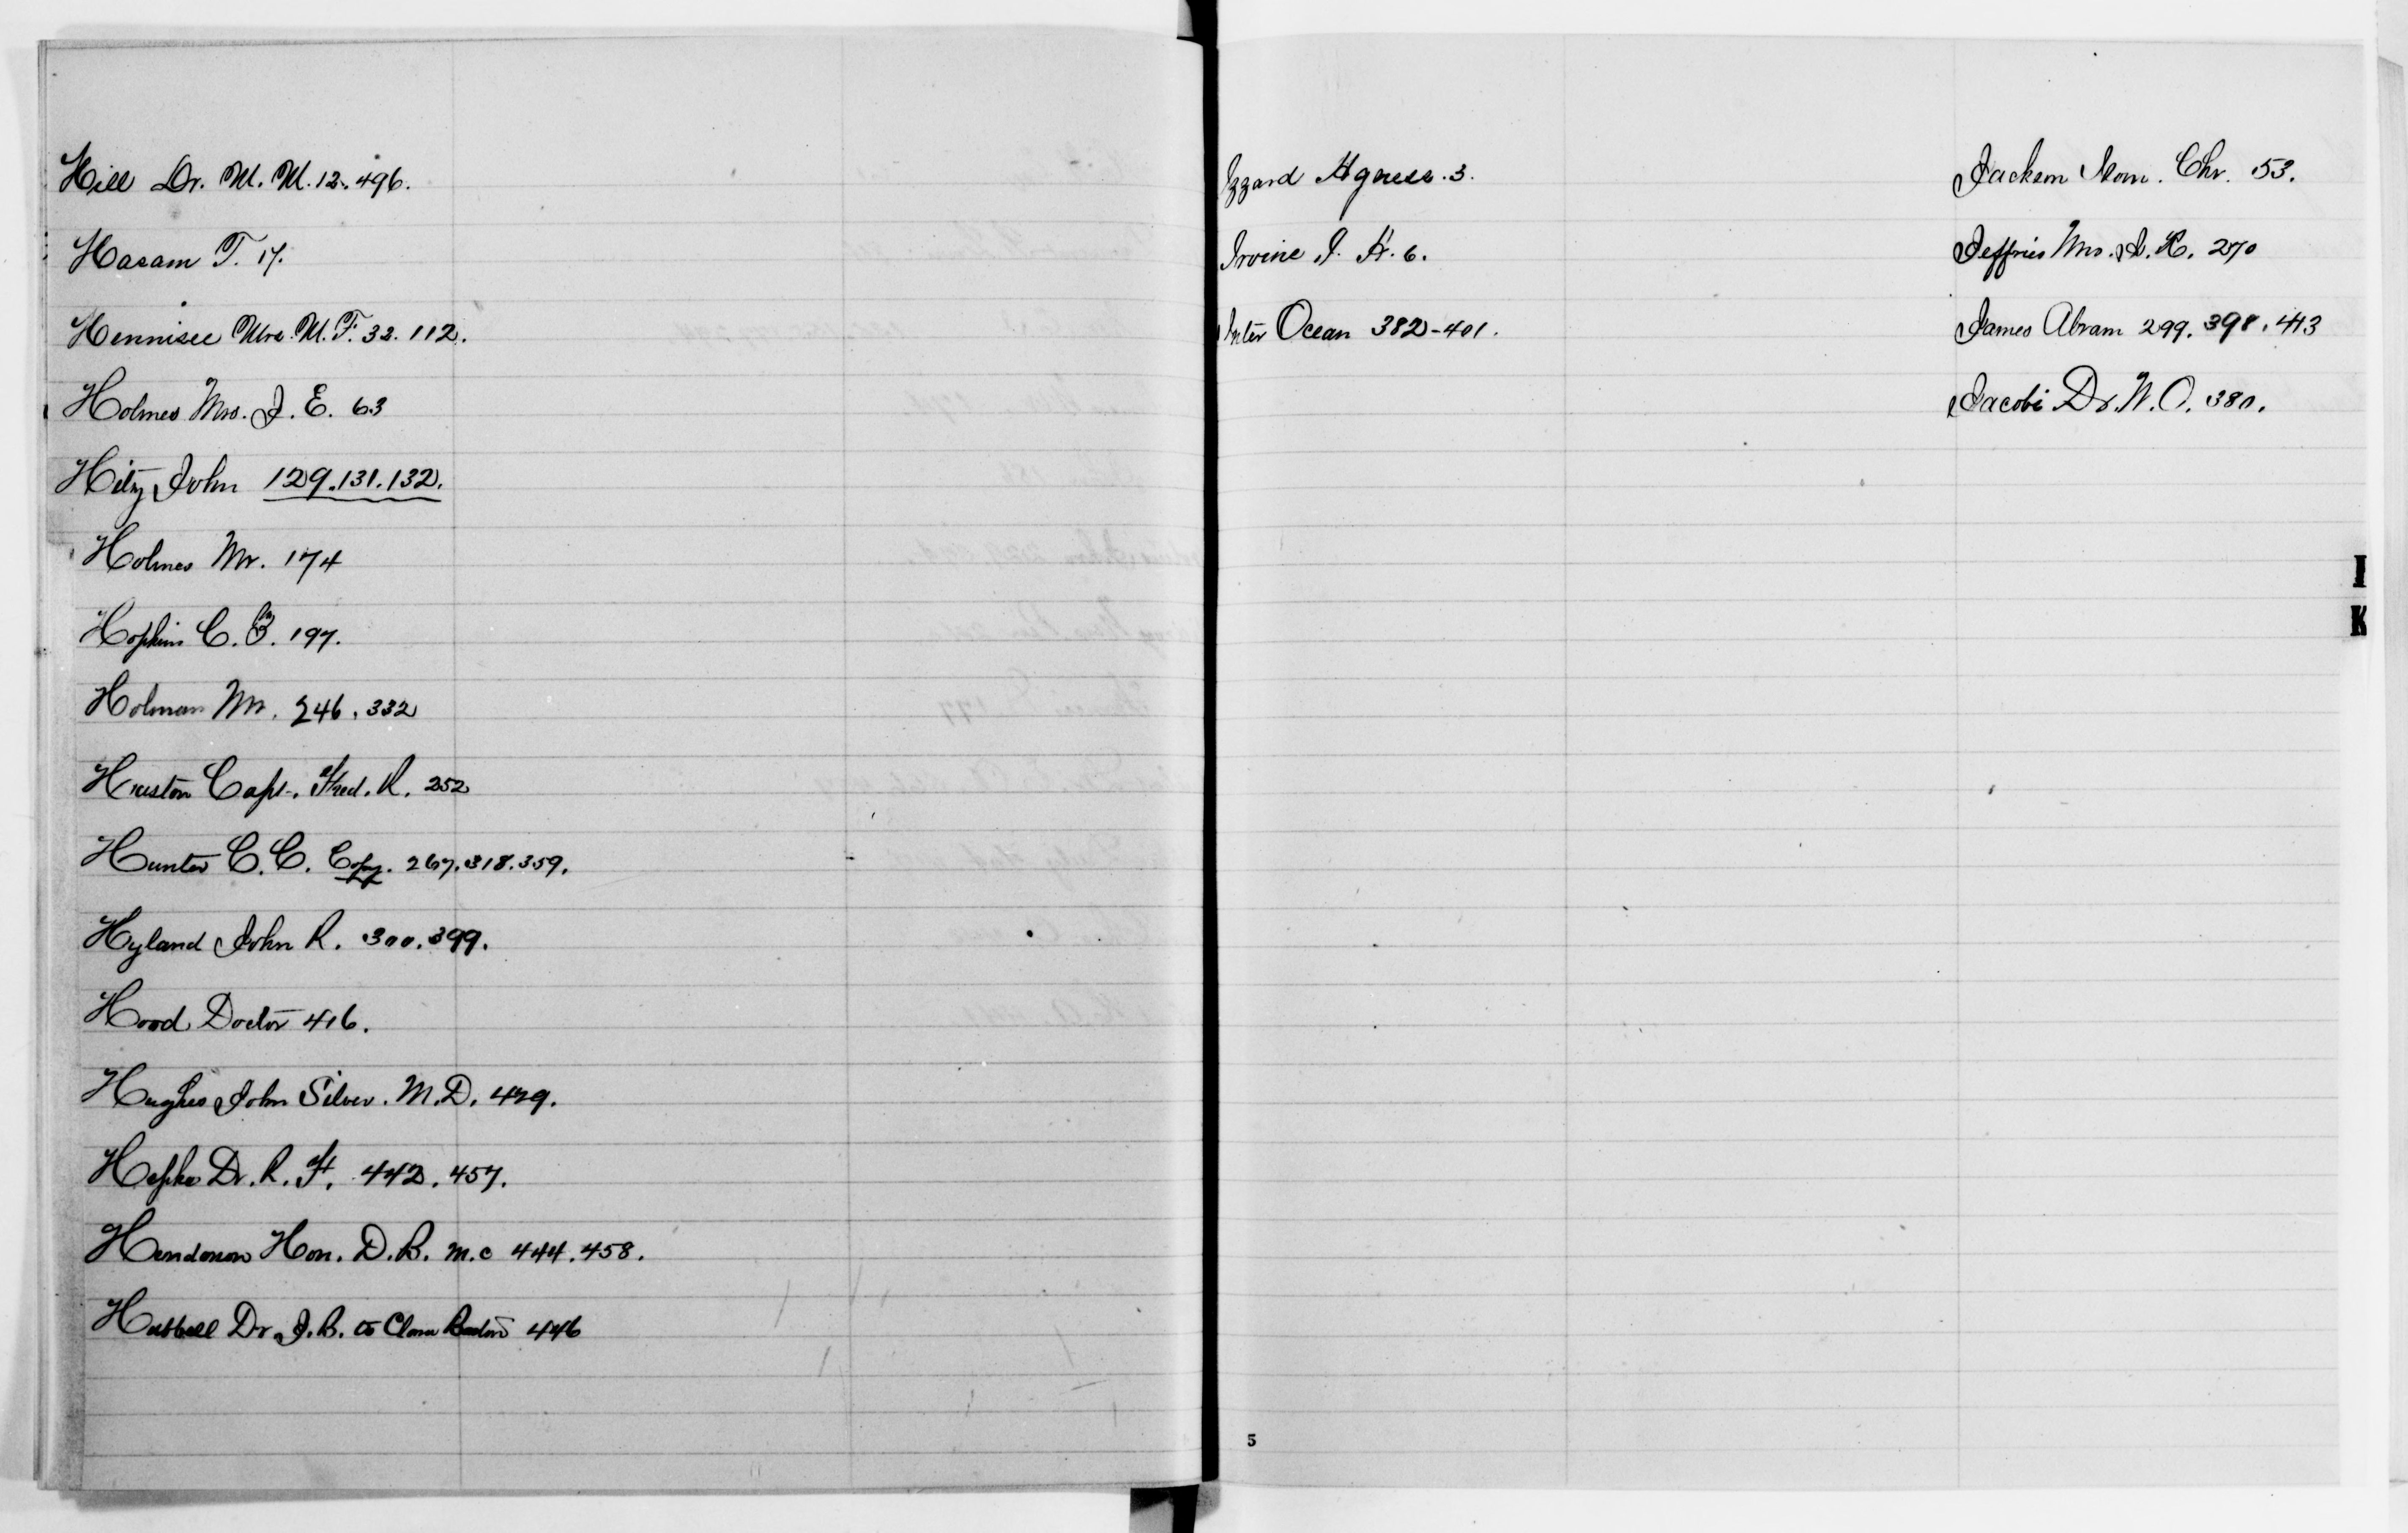 Hill Dr. M. M. 12. 496.
Hasam T. 17.
Hennisee Mrs. M. F. 32. 112.
Holmes Mrs. J. E. 63
Hitz John 129. 131. 132.
Holmes Mr. 174
Hopkins C. B. 197.
Holman Mr. 246. 332
Huston Capt. Fred. R. 252
Hunter C. C. Copy. 267. 318. 359.
Hyland John R. 300. 399.
Hood Doctor 416.
Hughes John Silver. M.D. 429.
Hepke Dr. R. F. 442. 457.
Henderson Hon. D. B. M.C 444. 458.
Hubbell Dr. J. B. to Clara Barton 446
Izzard Agness. 3.
Irvine I. H. 6.
Inter Ocean 382-401.
5
Jackson Chr. 53.
Jeffries Mrs. 270
James Abram 299. 398. 413
Jacobi Dr. W. O. 380.
I
K